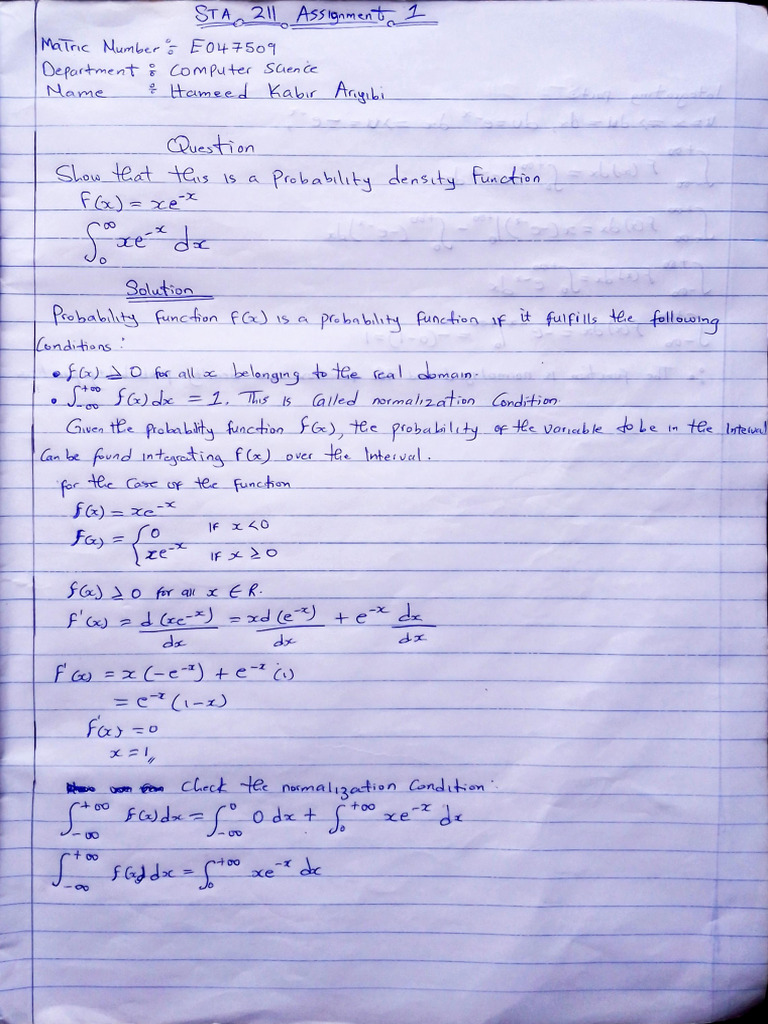 STA 211 Assignment 1
Matric Number :- E047509
Department : Computer Science
Name : Hameed Kabir Ariyibi
Question
Show that this is a Probability density function
F(x) = xe^-x
∫_0^∞ xe^-x dx
Solution
Probability function F(x) is a probability function if it fulfills the following
Conditions:
• f(x) ≥ 0 for all x belonging to the real domain.
• ∫_-∞^+∞ f(x)dx = 1. This is Called normalization Condition
Given the probability function f(x), the probability of the variable to be in the Interval
Can be found integrating F(x) over the Interval.
for the Case of the function
f(x) = xe^-x
f(x) = { 0 IF x < 0
xe^-x IF x ≥ 0
f(x) ≥ 0 for all x ∈ R.
F'(x) = d(xe^-x)/dx = xd(e^-x)/dx + e^-x dx/dx
F'(x) = x(-e^-x) + e^-x (1)
= e^-x (1-x)
F'(x) = 0
x = 1,,
Check the normalization Condition:
∫_-∞^+∞ f(x)dx = ∫_-∞^0 0 dx + ∫_0^+∞ xe^-x dx
∫_-∞^+∞ f(x)dx = ∫_0^+∞ xe^-x dx